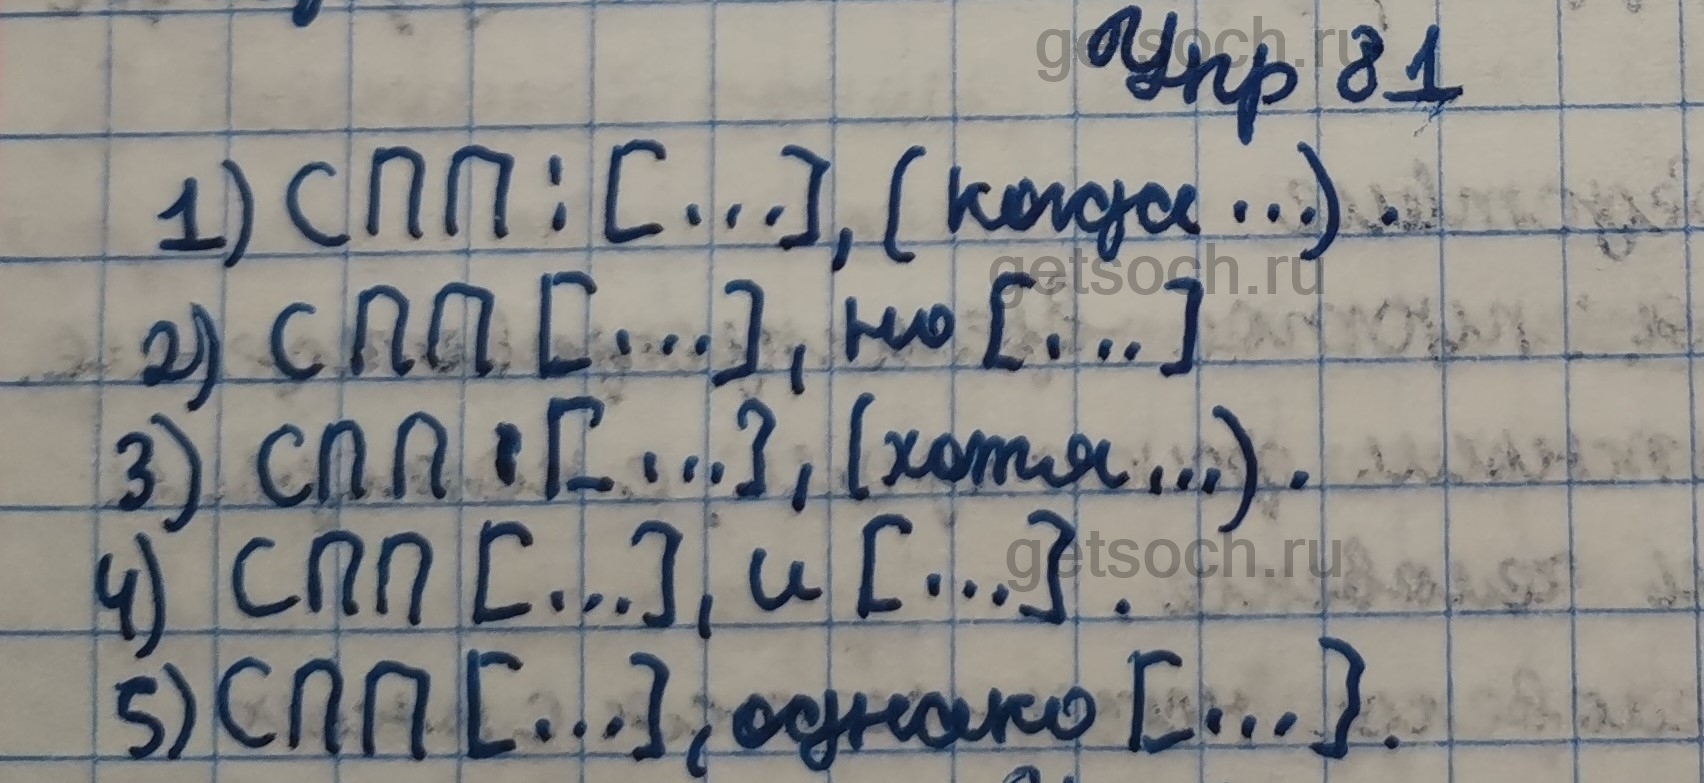 getsoch.ru
Упр 81
1) СПП: [...], (когда ...).
getsoch.ru
2) СПП [...], но [...]
3) СПП: [...], (хотя ...).
getsoch.ru
4) СПП [...], и [...].
5) СПП [...], однако [...].